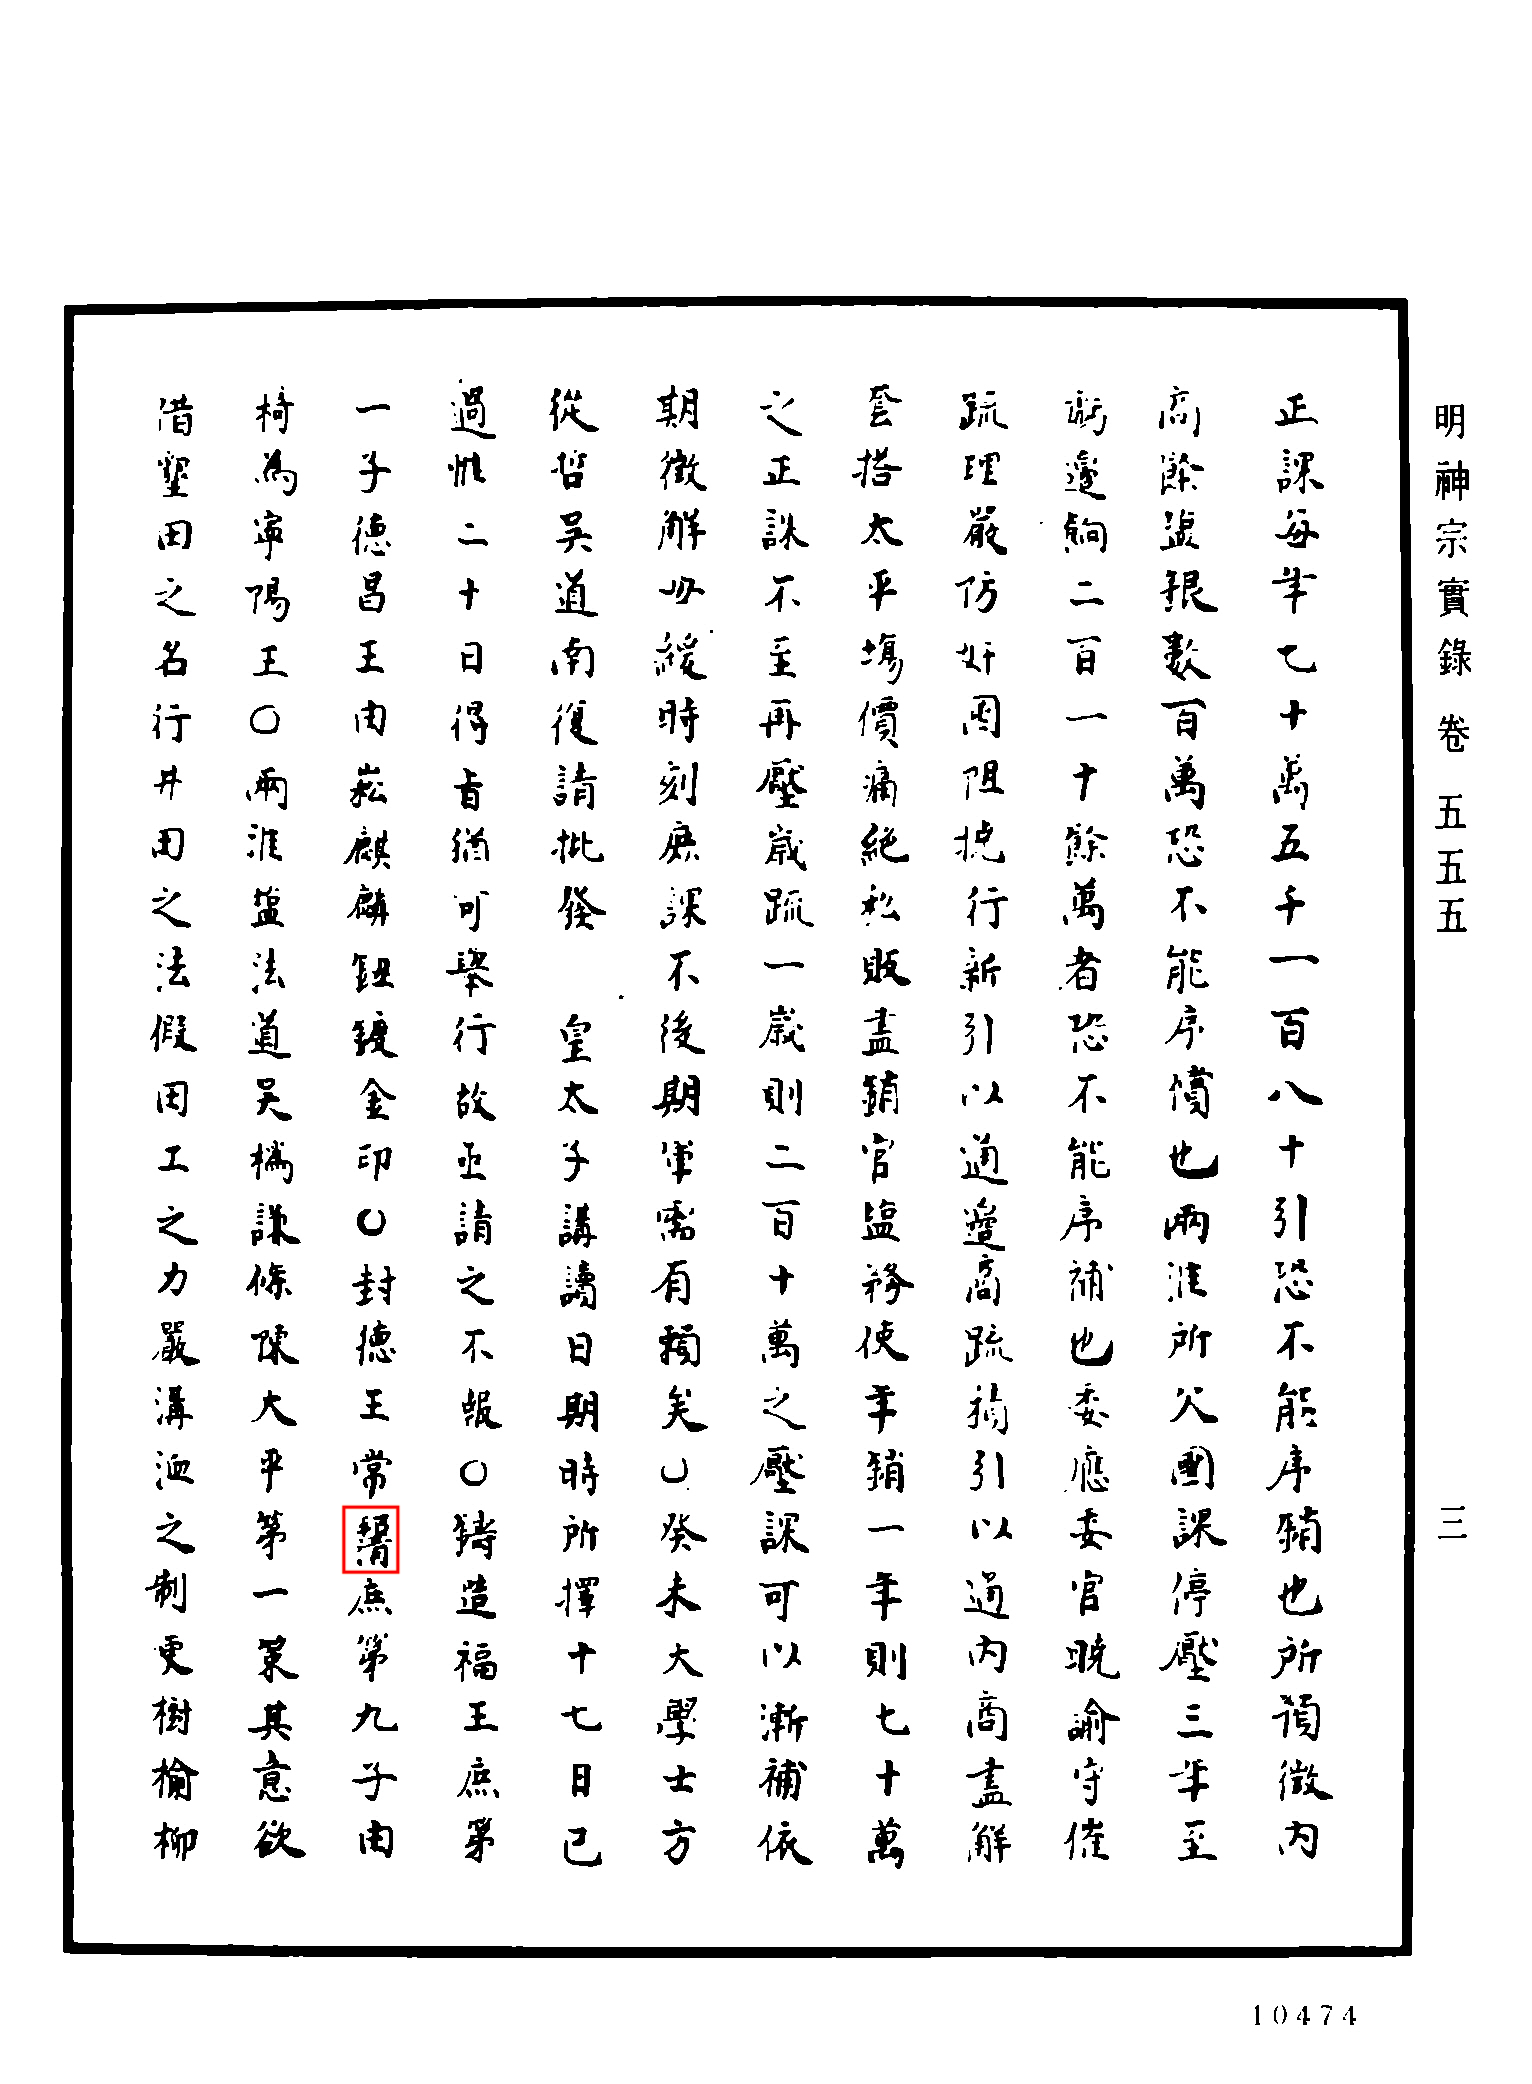 明神宗實錄 卷 五五五 三
正課每年七十萬五千一百八十引恐不能序銷也所預徵內
商餘塩銀數百萬恐不能序償也兩淮所欠國課停壓三年至
虧邊餉二百一十餘萬者恐不能序補也委應委官曉諭守催
疏理嚴防奸囤阻撓行新引以通邊商疏積引以通內商盡觧
套搭太平塲價痛絕私販盡銷官塩務使年銷一年則七十萬
之正課不至再壓歲疏一歲則二百十萬之壓課可以漸補依
期徵解毋緩時刻庶課不後期軍需有賴矣○癸未大學士方
從哲吳道南復請批發 皇太子講讀日期時所擇十七日已
過惟二十日得旨猶可舉行故亟請之不報○鑄造福王庶第
一子德昌王由崧麒麟鈕鍍金印○封德王常庶第九子由
椅為寧陽王○兩淮盐法道吳撝謙條陳大平第一策其意欲
借墾田之名行井田之法假田工之力嚴溝洫之制更樹榆柳
10474